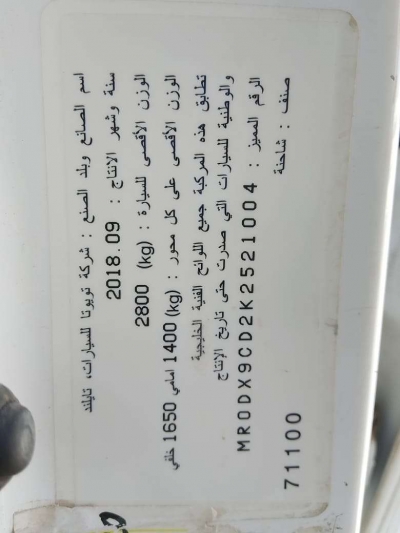 اسم الصانع وبلد الصنع : شركة تويوتا للسيارات، تايلند
سنة وشهر الانتاج : 2018.09
الوزن الأقصى للسيارة : (kg) 2800
الوزن الأقصى على كل محور : (kg) 1400 امامي 1650 خلفي
تطابق هذه المركبة جميع اللوائح الفنية الخليجية
والوطنية للسيارات التي صدرت حتى تاريخ الإنتاج
الرقم المميز : MR0DX9CD2K2521004
صنف : شاحنة
71100